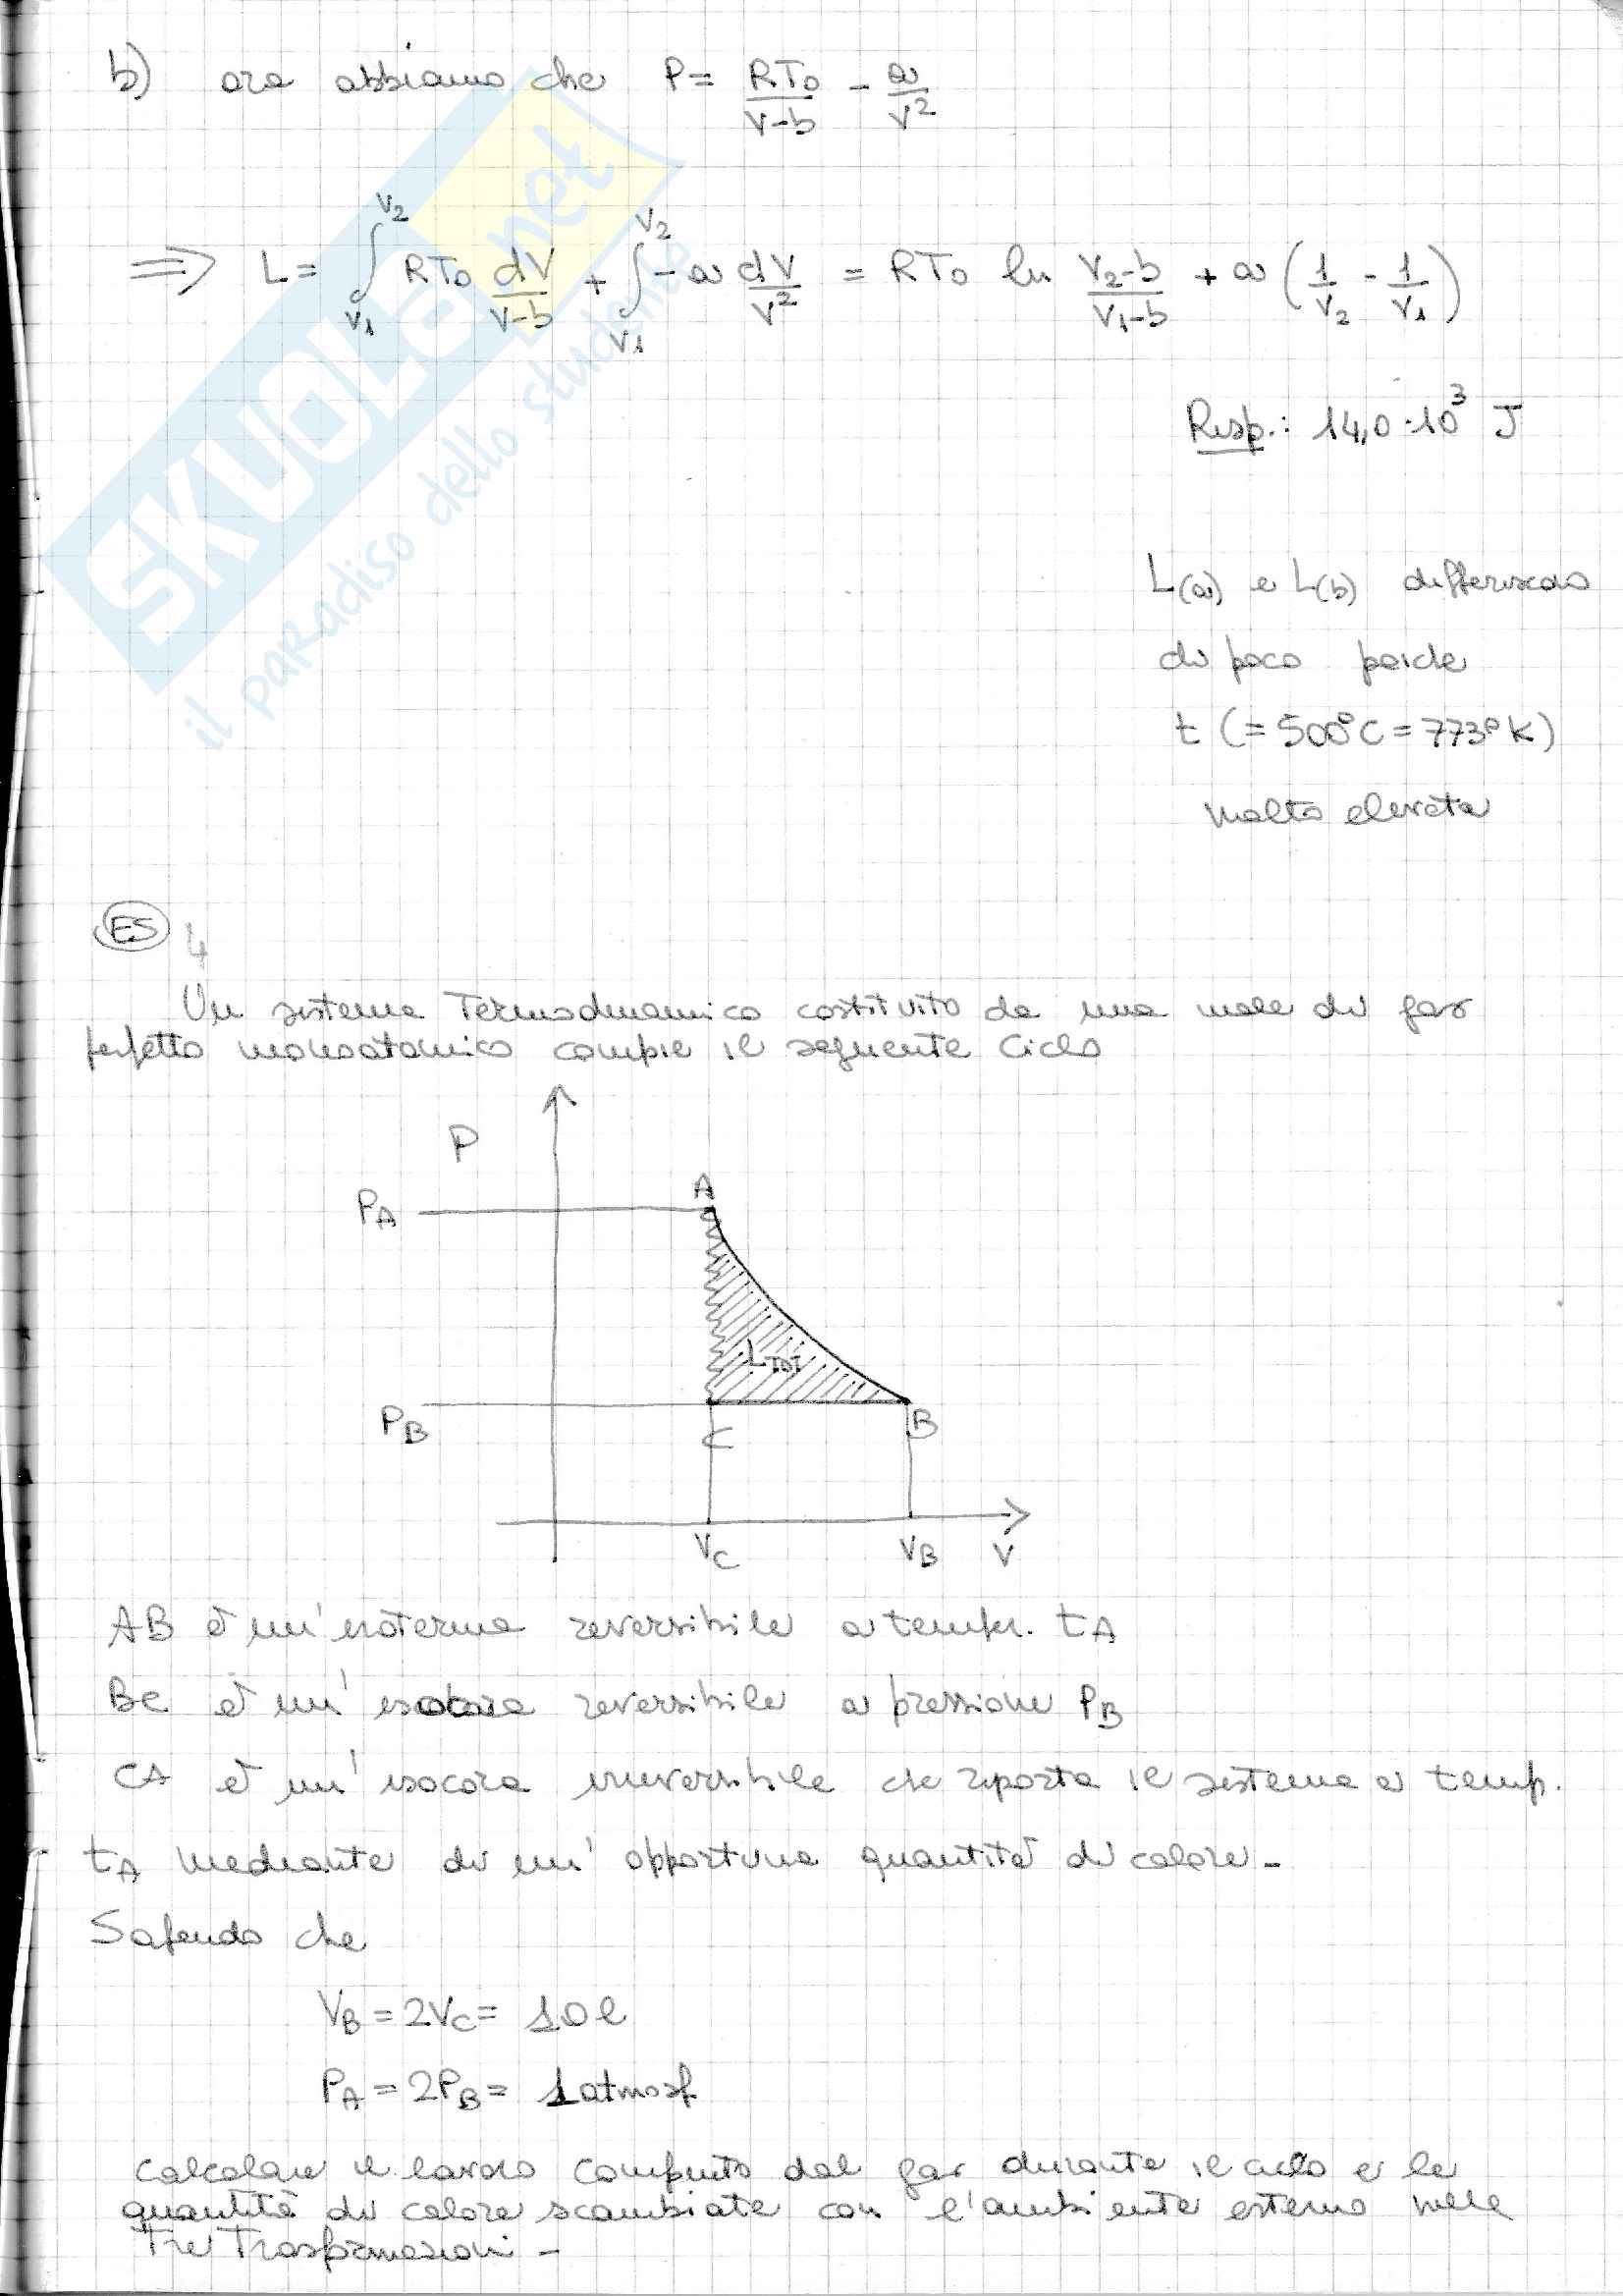 b) ora abbiamo che P = RT₀/(V-b) - a/V²
⇒ L = ∫_{V₁}^{V₂} RT₀ dV/(V-b) + ∫_{V₁}^{V₂} -a dV/V² = RT₀ ln (V₂-b)/(V₁-b) + a (1/V₂ - 1/V₁)
Resp.: 14,0·10³ J
L(a) e L(b) differiscono
di poco poiché
t (=500°C = 773°K)
molto elevata
ES 4
Un sistema Termodinamico costituito da una mole di gas
perfetto monoatomico compie il seguente ciclo
P
A
P_A
L_TOT
P_B
C
B
V_C
V_B
V
AB è un'isoterma reversibile a temp. t_A
BC è un' reversibile a pressione P_B
CA è un' isocora irreversibile che riporta il sistema a temp.
t_A mediante di un' opportuna quantità di calore -
Sapendo che
V_B = 2V_C = 10 l
P_A = 2P_B = 1 atmosf.
calcolare il lavoro compiuto dal gas durante il ciclo e le
quantità di calore scambiate con l'ambiente esterno nelle
Tre Trasformazioni -
SKUOLA.net
il paradiso dello studente